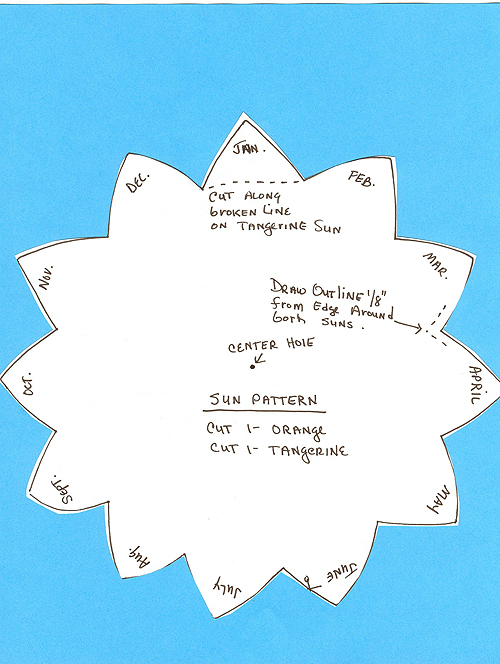 JAN.
FEB.
MAR.
APRIL
MAY
JUNE
JULY
Aug.
SEPT.
OCT.
NOV.
DEC.
CUT ALONG
broken LINE
ON TANGERINE SUN
DRAW OUTLINE 1/8"
from Edge Around
both SUNS.
CENTER HOLE
SUN PATTERN
CUT 1- ORANGE
CUT 1- TANGERINE